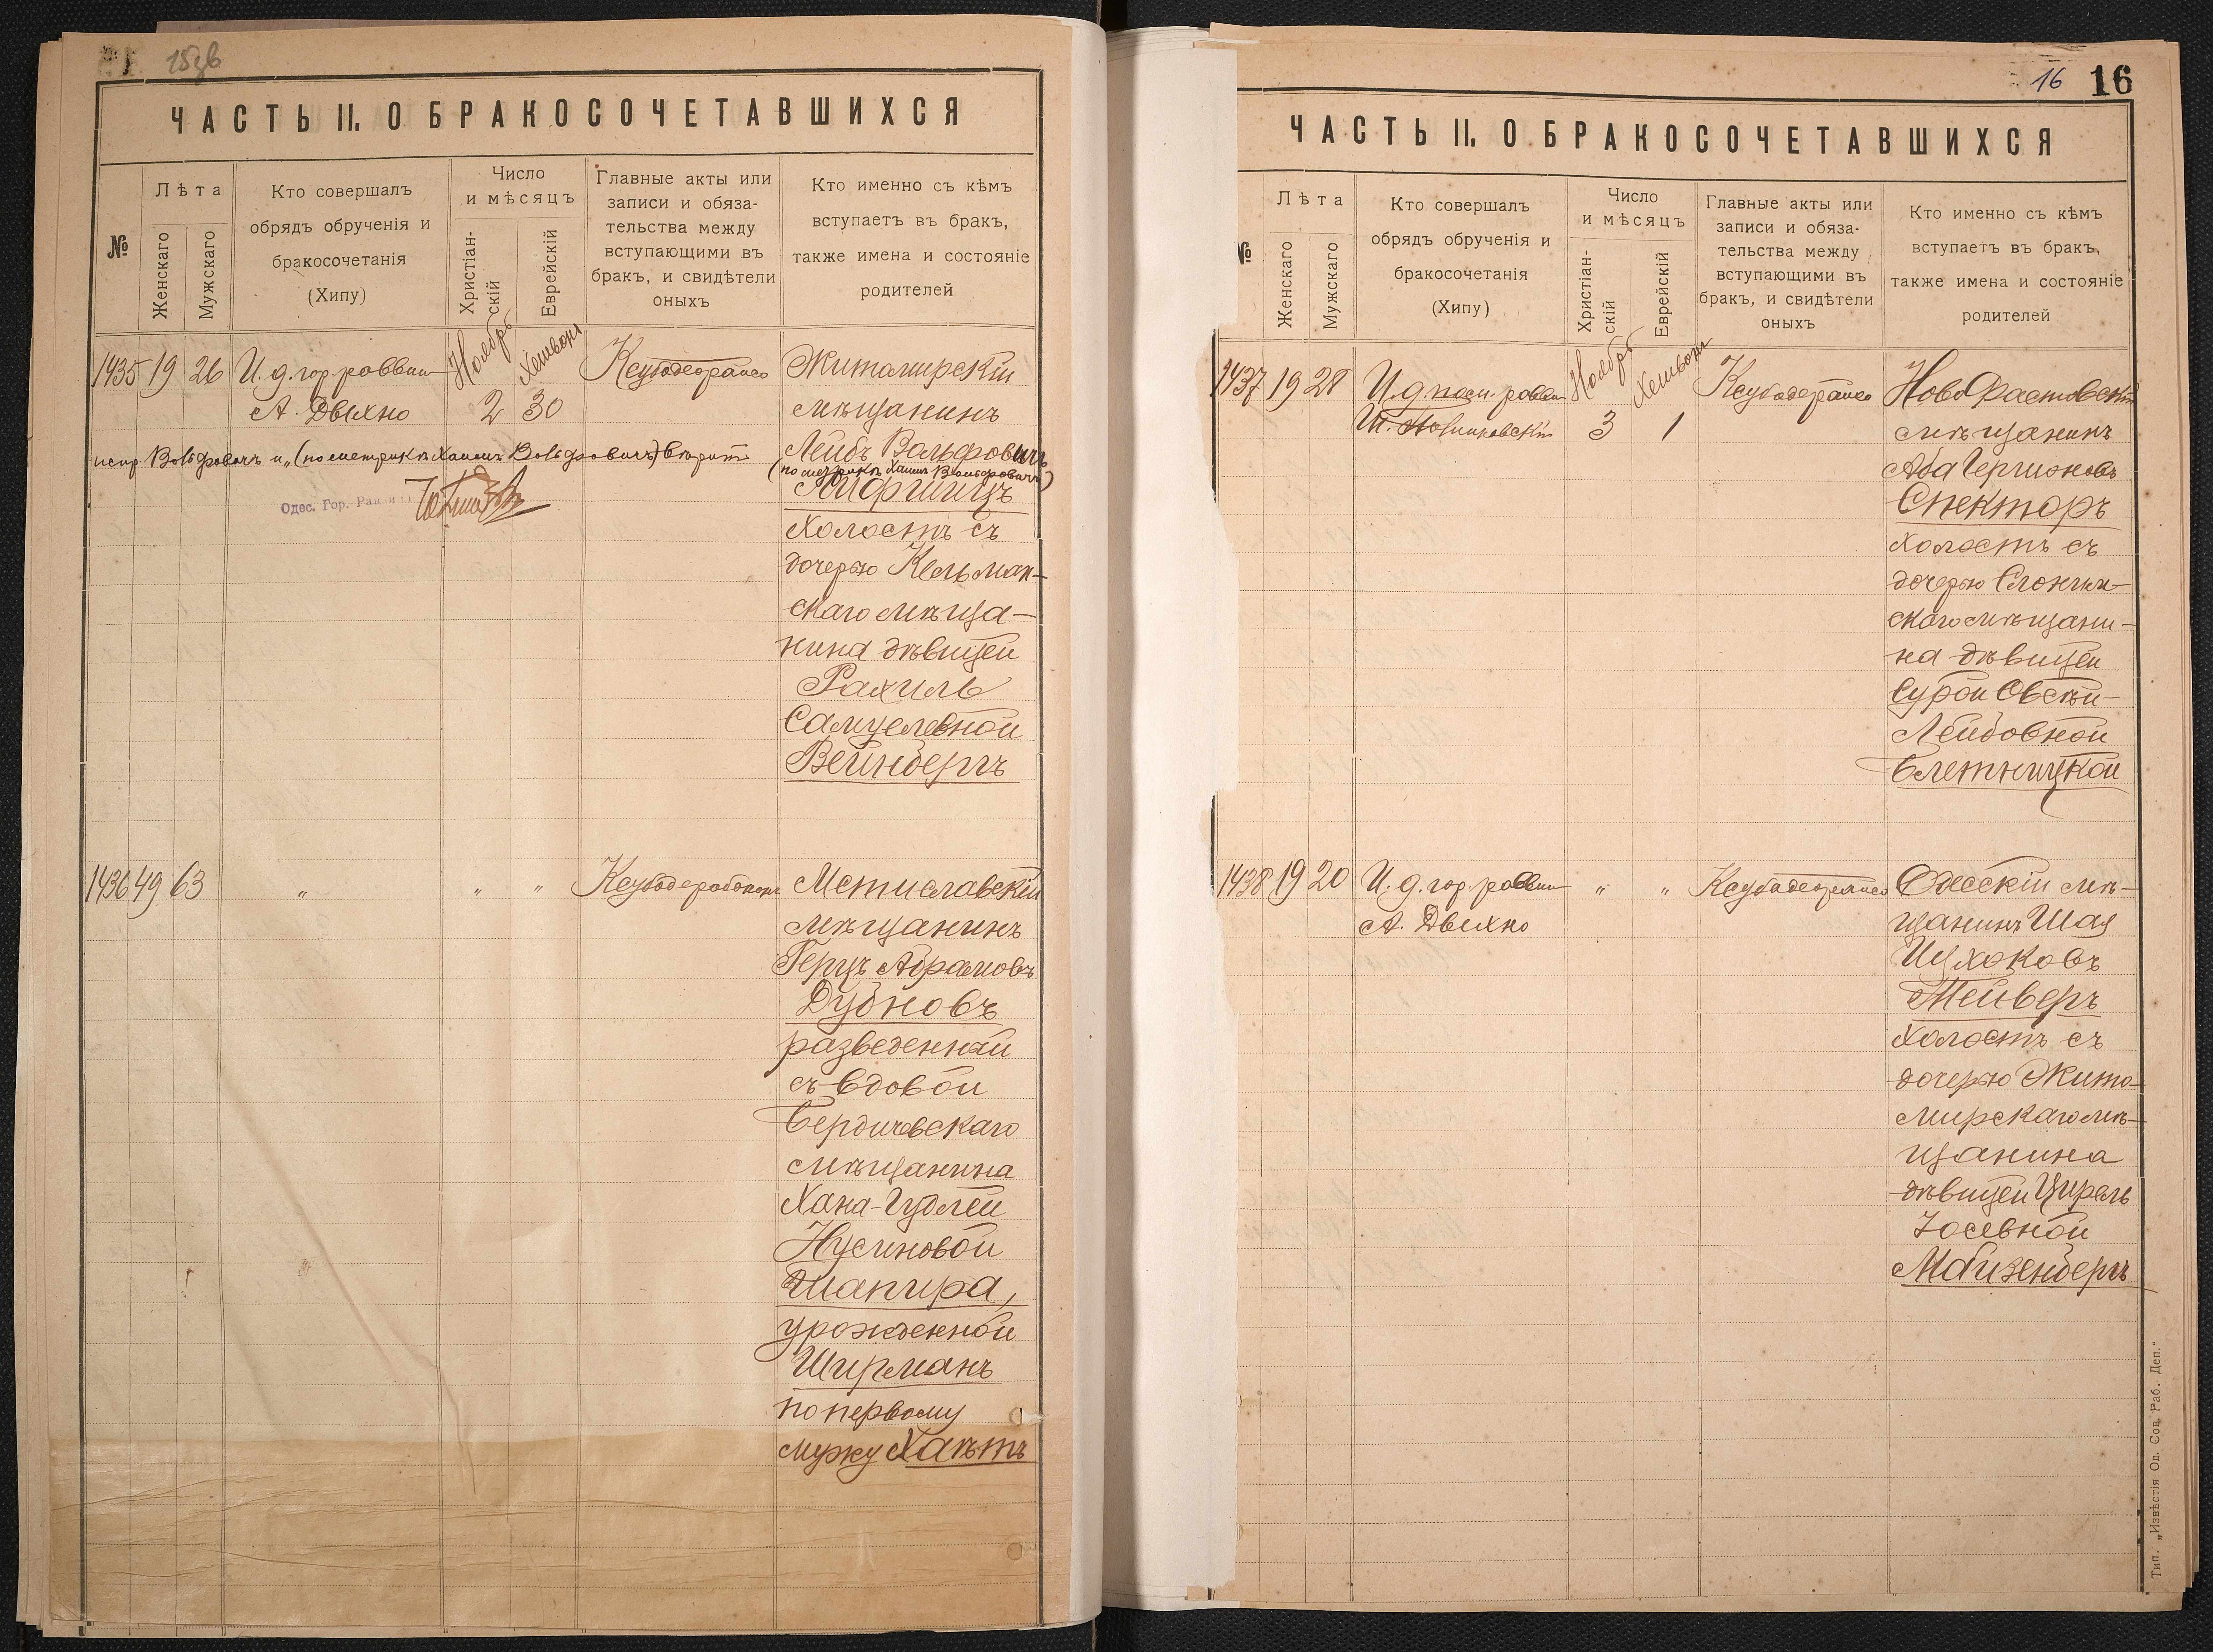 15зв
ЧАСТЬ II. О БРАКОСОЧЕТАВШИХСЯ
№
Лѣта
Женскаго
Мужскаго
Кто совершалъ
обрядъ обрученія и
бракосочетанія
(Хипу)
Число
и мѣсяцъ
Христіан-
скій
Еврейскій
Главные акты или
записи и обяза-
тельства между
вступающими въ
бракъ, и свидѣтели
оныхъ
Кто именно съ кѣмъ
вступаетъ въ бракъ,
также имена и состояніе
родителей
1435 19 26 И. д. гор. раввин
А. Двихно
Ноябрь
2
Хешвонъ
30
Житомирскій
мѣщанинъ
Лейбъ Вольфовичъ
(по метрикѣ Хаимъ Вольфовичъ)
Лифшицъ
холостъ съ
дочерью Кельман-
скаго мѣща-
нина дѣвицей
Рахиль
Самуелевной
Вейнбергъ
испр. Вольфовичъ и „(по метрикѣ Хаимъ Вольфовичъ) вѣрить
Одес. Гор. Раввин
1436 49 63 „ „ „
Мстиславскій
мѣщанинъ
Герцъ Абрамовъ
Дубновъ
разведенный
съ вдовой
Бердичевскаго
мѣщанина
Хана-Гудлей
Нусиновой
Шапира,
урожденной
Ширманъ
по первому
мужу Хаѣтъ
16 16
ЧАСТЬ II. О БРАКОСОЧЕТАВШИХСЯ
№
Лѣта
Женскаго
Мужскаго
Кто совершалъ
обрядъ обрученія и
бракосочетанія
(Хипу)
Число
и мѣсяцъ
Христіан-
скій
Еврейскій
Главные акты или
записи и обяза-
тельства между
вступающими въ
бракъ, и свидѣтели
оныхъ
Кто именно съ кѣмъ
вступаетъ въ бракъ,
также имена и состояніе
родителей
1437 19 28 И. д. пом. раввин
Ноябрь
3
Хешвонъ
1
НовоФастовскій
мѣщанинъ
Аба Гершоновъ
Спекторъ
холостъ съ
дочерью Слоним-
скаго мѣщани-
на дѣвицей
Сурой Овсѣй-
Лейбовной
Блетницкой
1438 19 20 И. д. гор. раввин „ „
А. Двихно
Одесскій мѣ-
щанинъ Шая
Ицхоковъ
Тейверъ
холостъ съ
дочерью Жито-
мирскаго мѣ-
щанина
дѣвицей Цирель
Іосевной
Майзенбергъ
Тип. „Извѣстія Од. Сов. Раб. Деп."